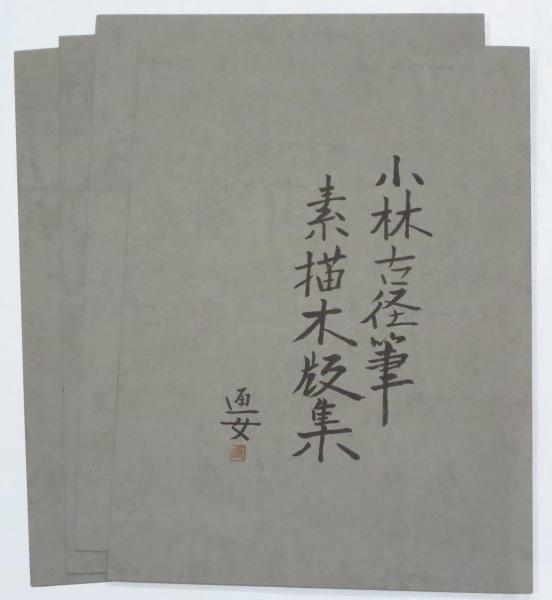 小林古径筆
素描木版集
通女